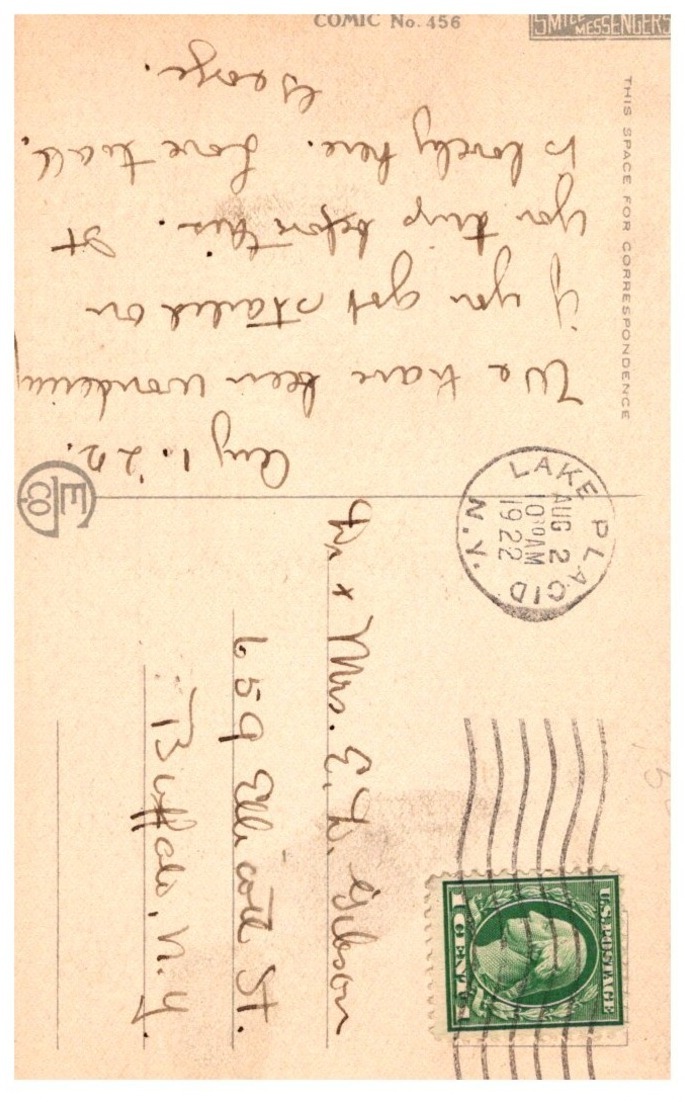 COMIC No. 456
SMILE MESSENGERS
THIS SPACE FOR CORRESPONDENCE
Aug 1. '22.
We have been wondering
if you got started on
your trip before this. It
is lovely here. Love to all.
George.
LAKE PLACID
AUG 2
10 AM
1922
N.Y.
E CO
Dr & Mrs. E. D. Gibson
659 Ellicott St.
Buffalo, N.Y.
U.S. POSTAGE
1 CENT 1